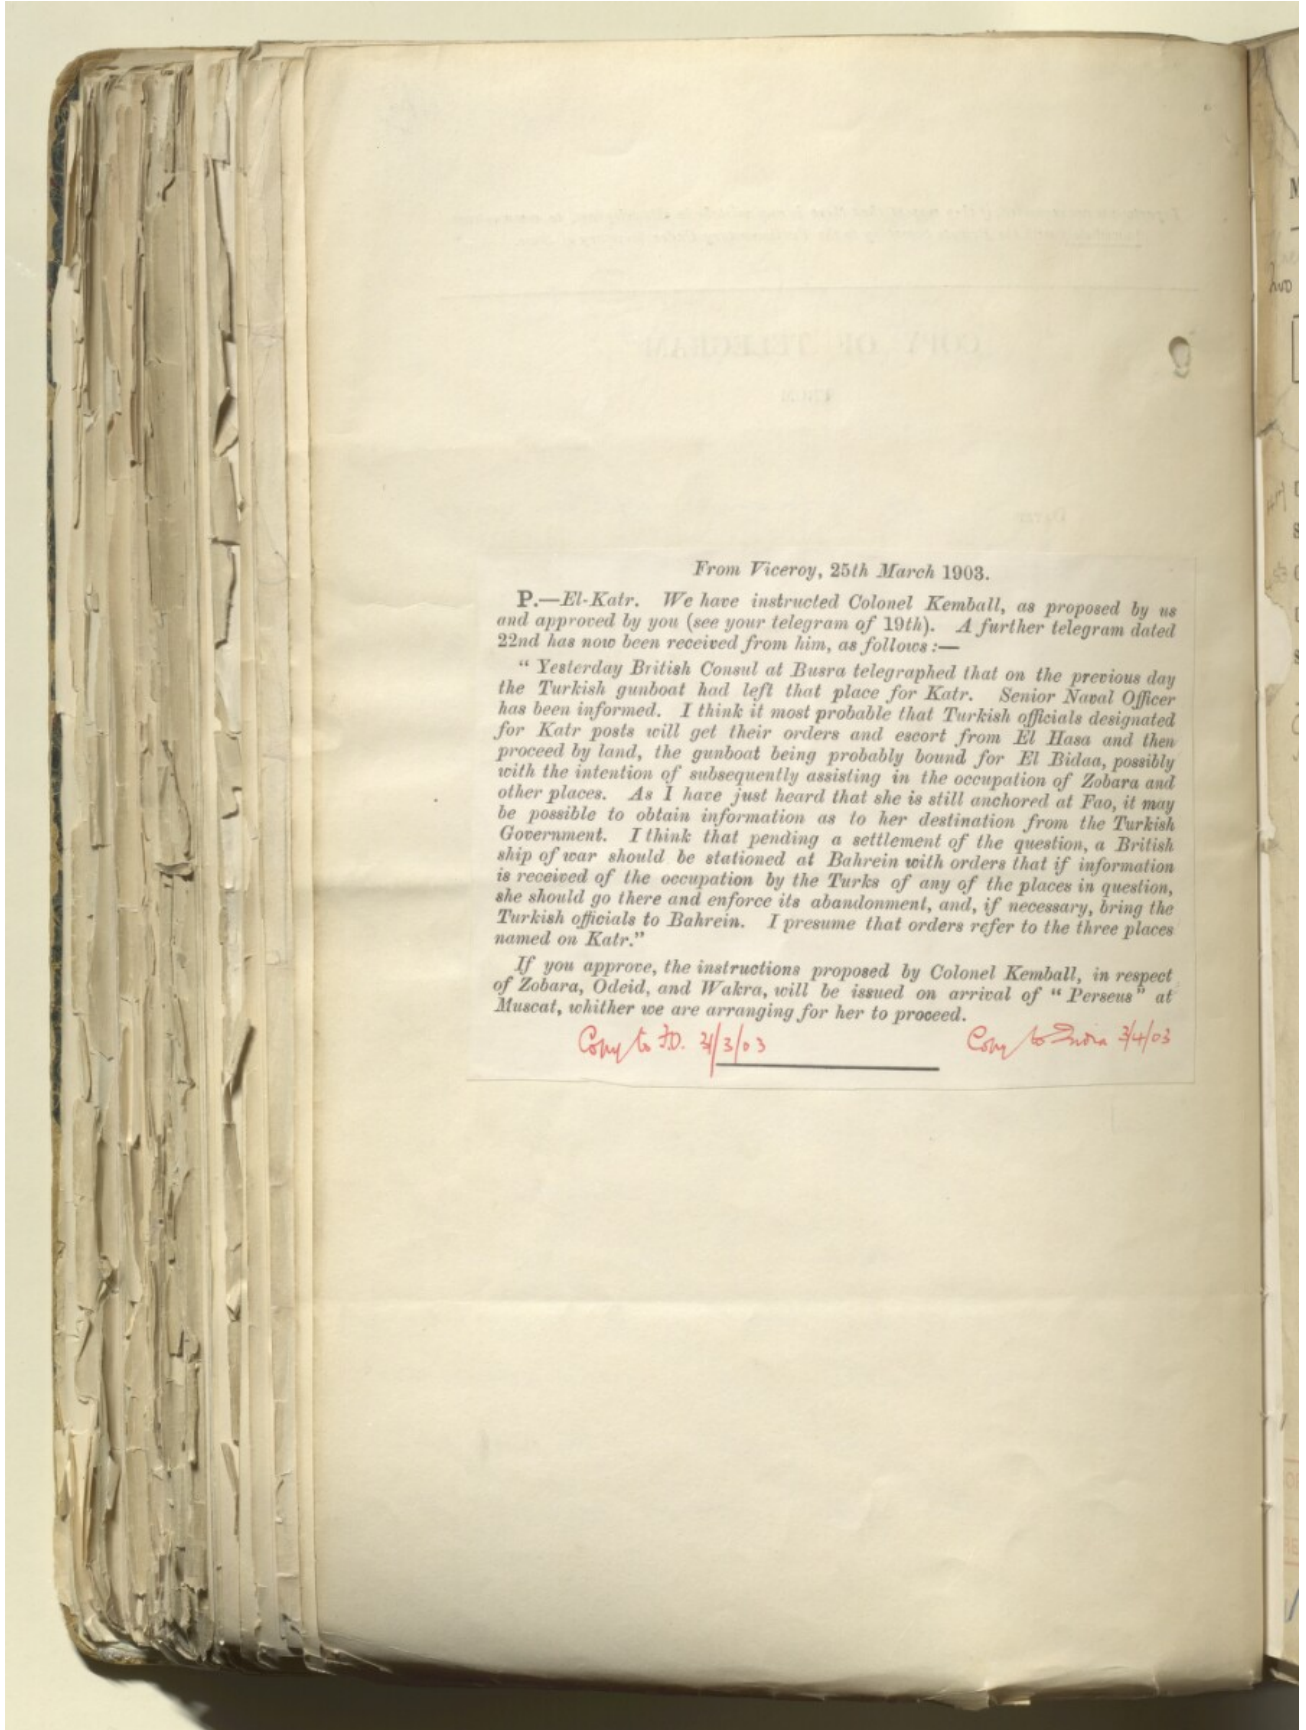 From Viceroy, 25th March 1903.
P.—El-Katr. We have instructed Colonel Kemball, as proposed by us
and approved by you (see your telegram of 19th). A further telegram dated
22nd has now been received from him, as follows:—
" Yesterday British Consul at Busra telegraphed that on the previous day
the Turkish gunboat had left that place for Katr. Senior Naval Officer
has been informed. I think it most probable that Turkish officials designated
for Katr posts will get their orders and escort from El Hasa and then
proceed by land, the gunboat being probably bound for El Bidaa, possibly
with the intention of subsequently assisting in the occupation of Zobara and
other places. As I have just heard that she is still anchored at Fao, it may
be possible to obtain information as to her destination from the Turkish
Government. I think that pending a settlement of the question, a British
ship of war should be stationed at Bahrein with orders that if information
is received of the occupation by the Turks of any of the places in question,
she should go there and enforce its abandonment, and, if necessary, bring the
Turkish officials to Bahrein. I presume that orders refer to the three places
named on Katr."
If you approve, the instructions proposed by Colonel Kemball, in respect
of Zobara, Odeid, and Wakra, will be issued on arrival of " Perseus" at
Muscat, whither we are arranging for her to proceed.
Copy to F.O. /3/03
Copy to India 3/4/03